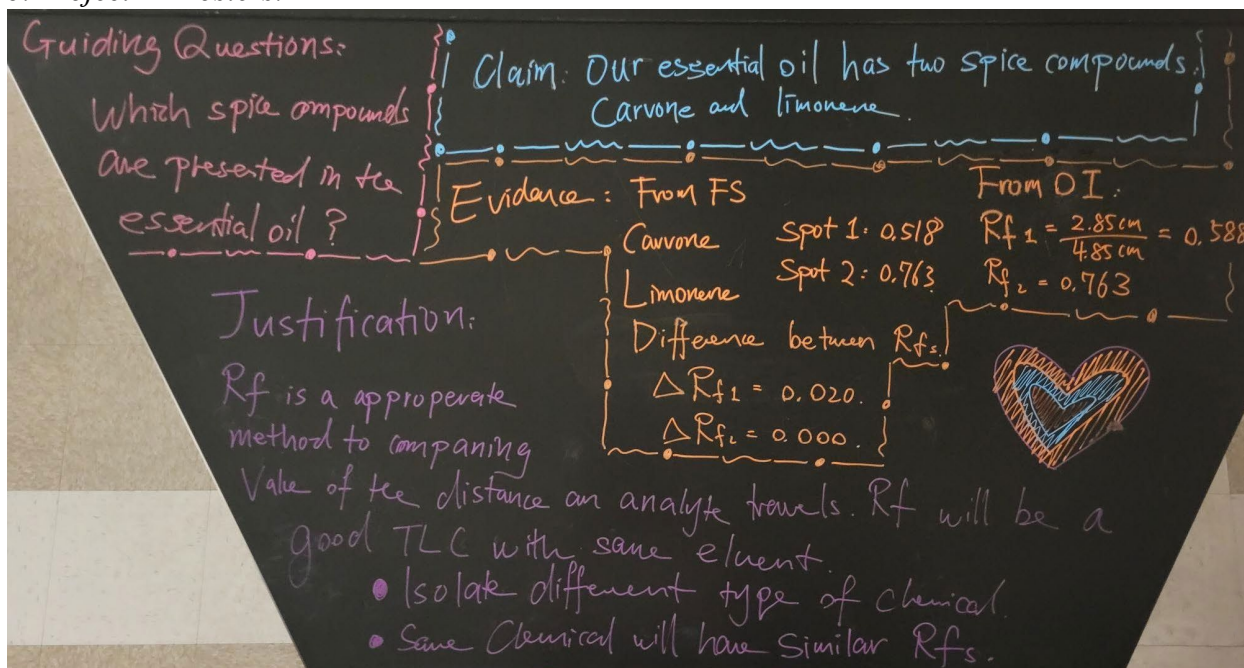 Guiding Questions:
Which spice compounds
are presented in the
essential oil ?
Claim: Our essential oil has two spice compounds.
Carvone and limonene.
Evidence : From FS
Carvone Spot 1: 0.518
Limonene Spot 2: 0.763
From DI:
Rf 1 = 2.85cm / 4.85cm = 0.588
Rf 2 = 0.763
Difference between Rfs.
△ Rf1 = 0.020.
△ Rf2 = 0.000.
Justification:
Rf is a approperate
method to companing
Value of the distance an analyte travels. Rf will be a
good TLC with same eluent.
• Isolate different type of chemical.
• Same Chemical will have similar Rfs.